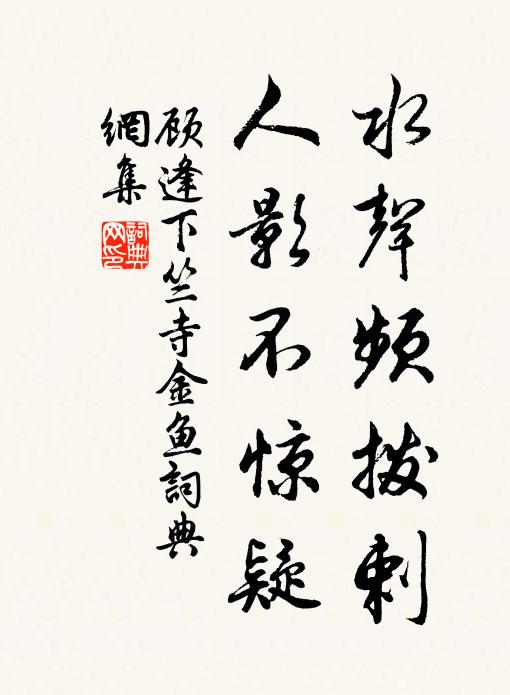 水聲頻拨剌
人影不惊疑
顾逢下竺寺金鱼詞典
網集
詞典
网印